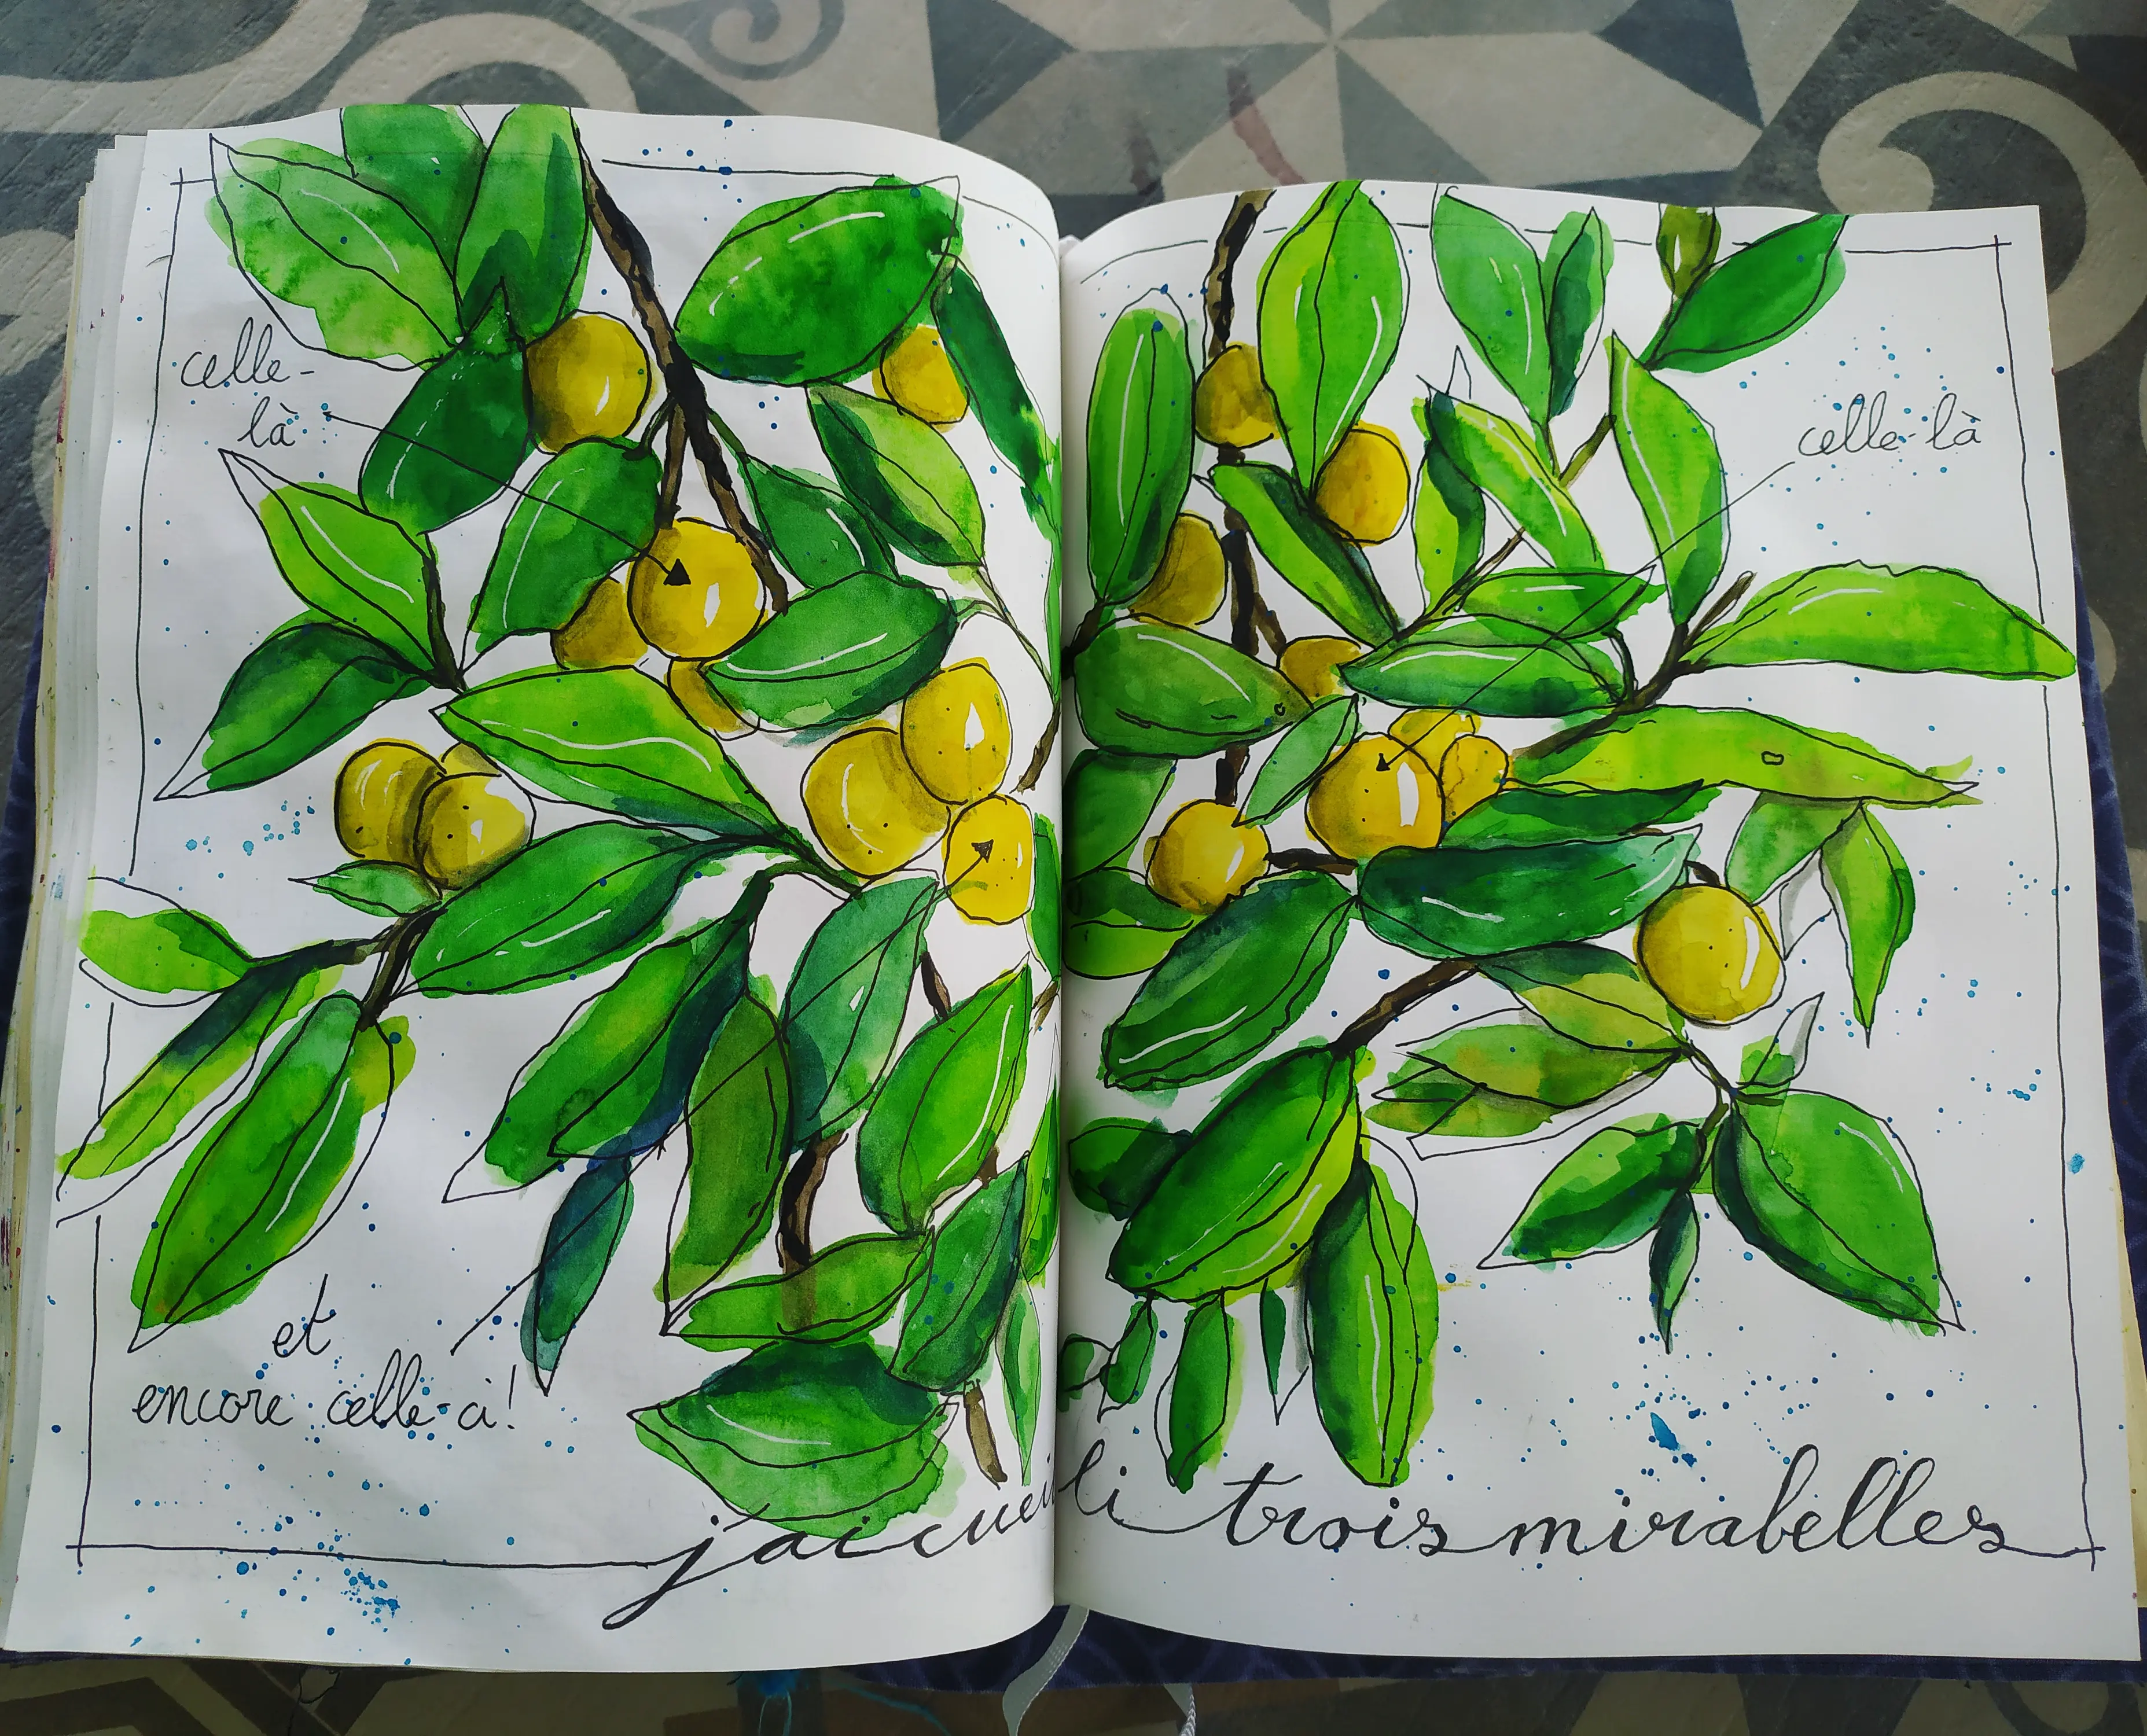 celle-
là
celle-là
et
encore celle-ci!
j'ai cueilli trois mirabelles